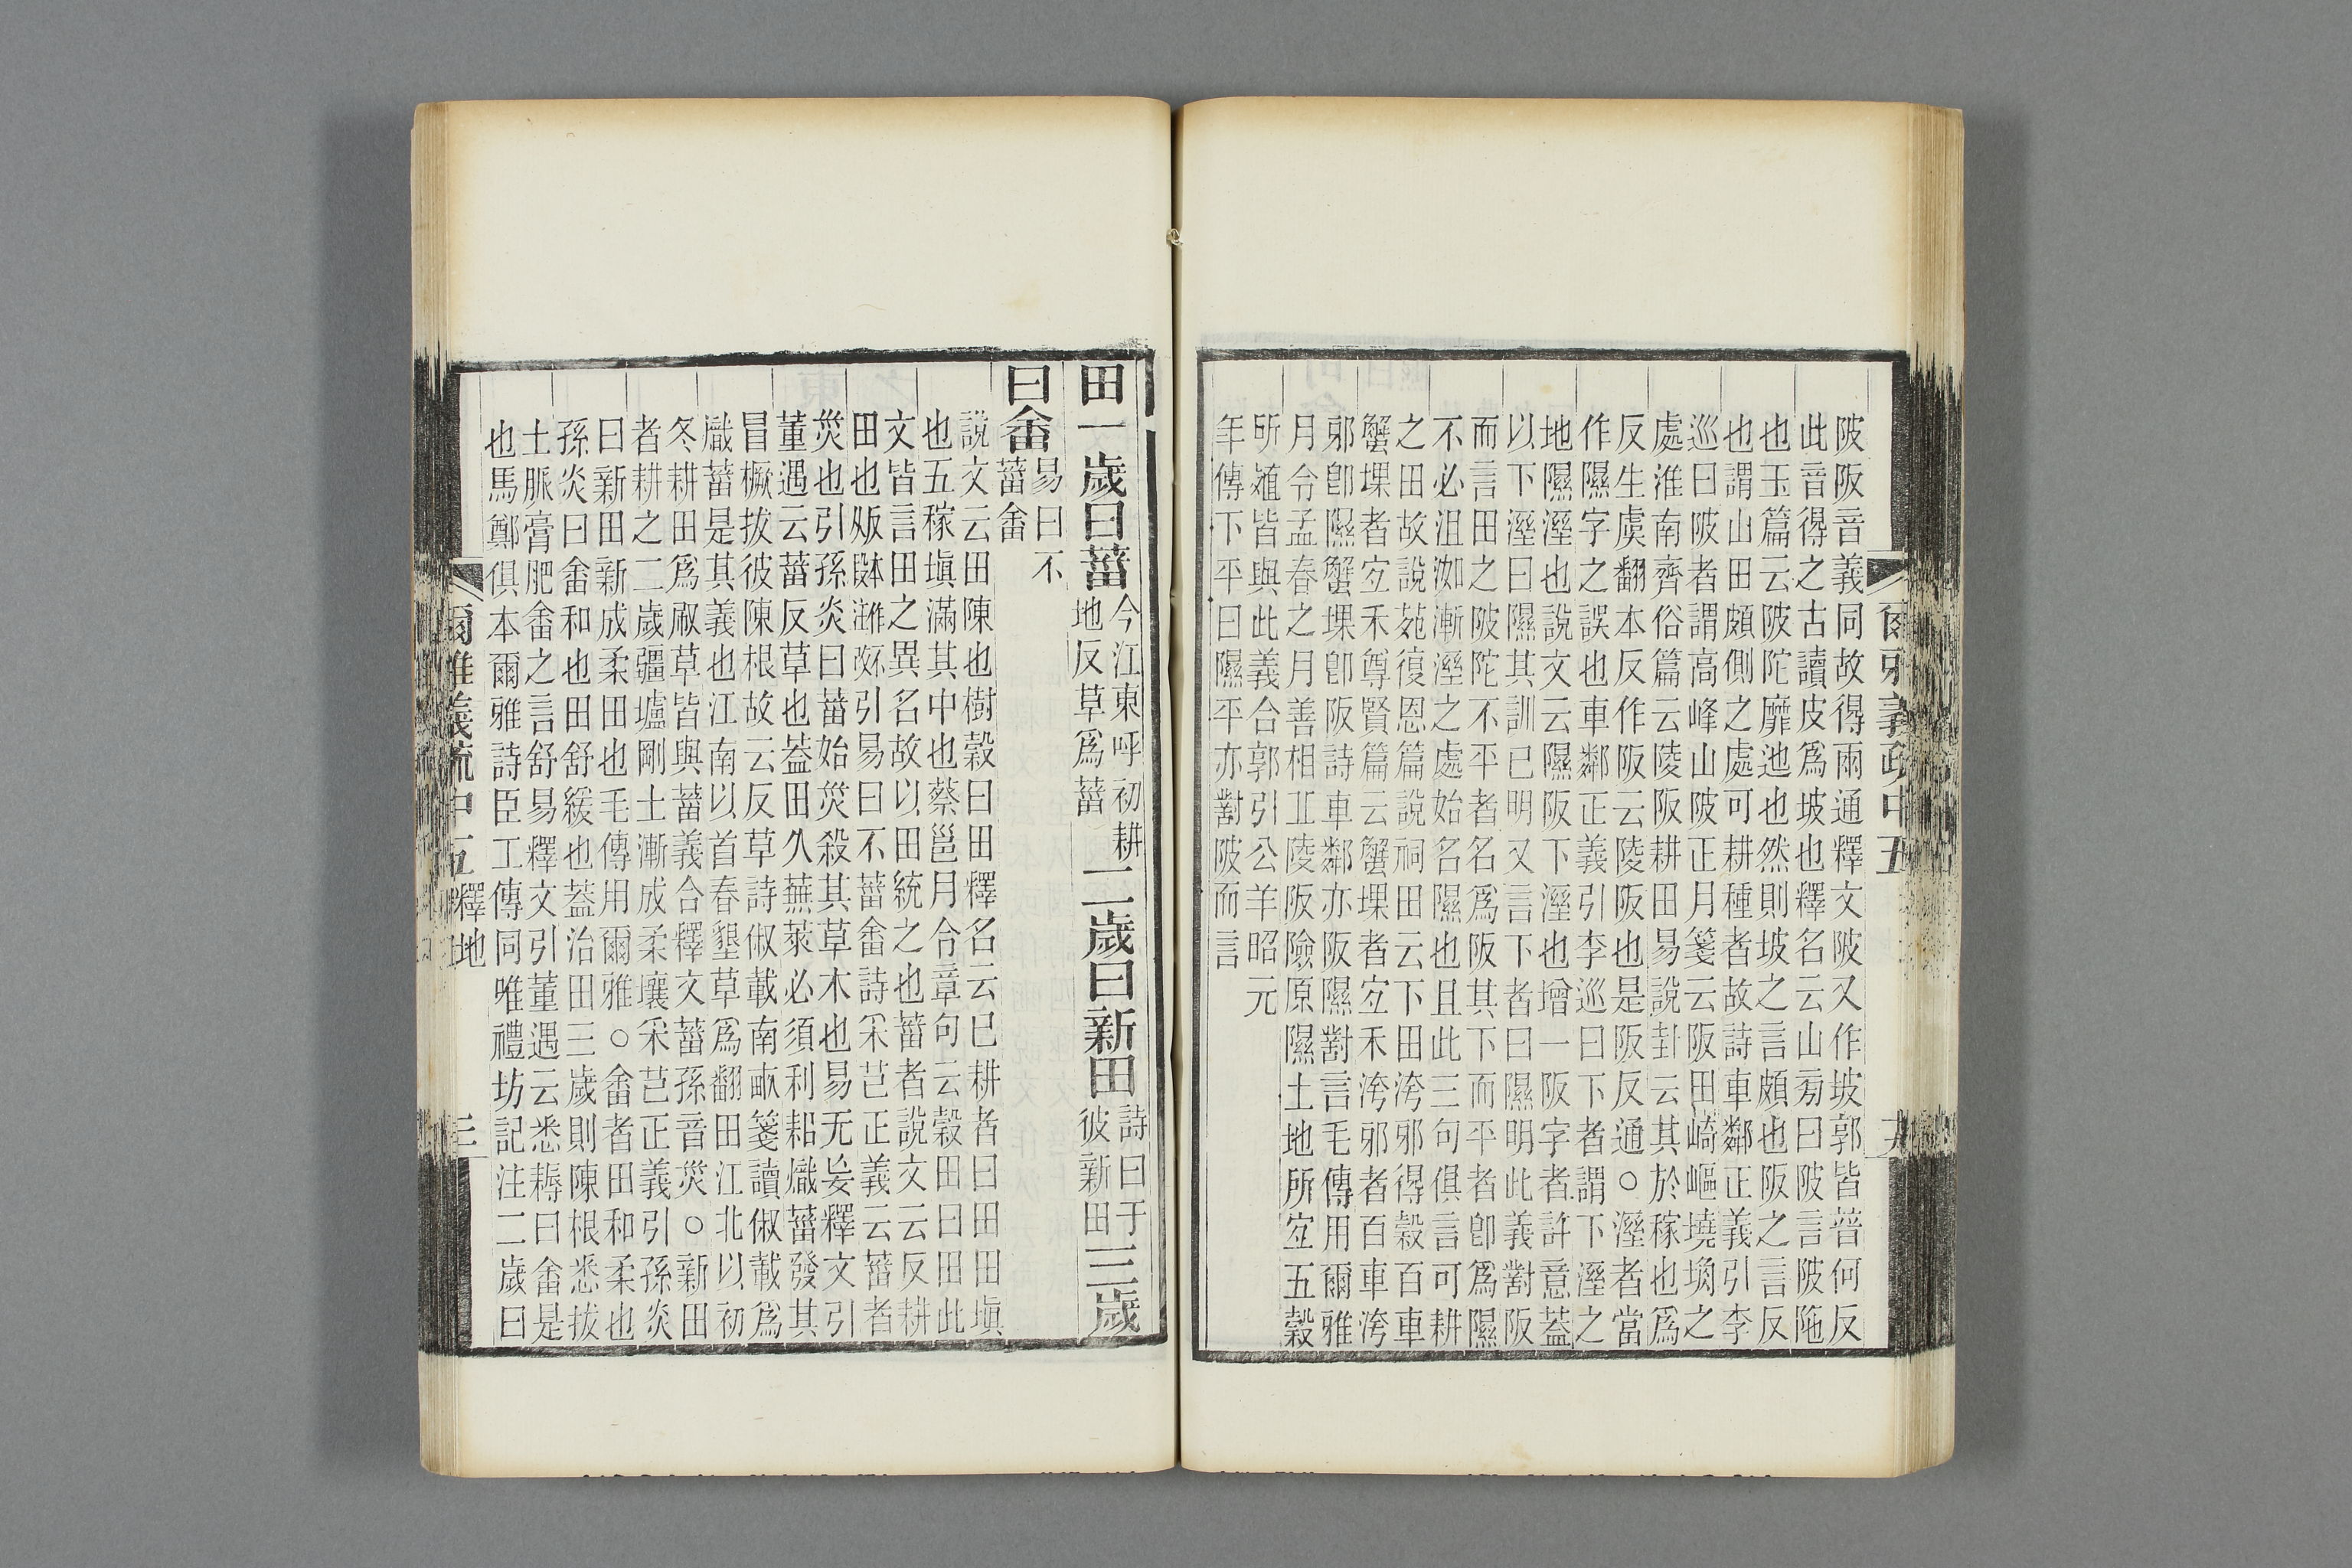 陂阪音義同故得兩通釋文陂又作坡郭皆普何反
此音得之古讀皮爲坡也釋名云山旁曰陂言陂陁
也玉篇云陂陀靡迆也然則坡之言頗也阪之言反
也謂山田頗側之處可耕種者故詩車鄰正義引李
巡曰陂者謂高峰山陂正月箋云阪田崎嶇墝埆之
處淮南齊俗篇云陵阪耕田易說卦云其於稼也爲
反生虞翻本反作阪云陵阪也是阪反通○溼者當
作隰字之誤也車鄰正義引李巡曰下者謂下溼之
地隰溼也說文云隰阪下溼也增一阪字者許意蓋
以下溼曰隰其訓已明又言下者曰隰明此義對阪
而言田之陂陀不平者名爲阪其下而平者卽爲隰
不必沮洳漸溼之處始名隰也且此三句俱言可耕
之田故說苑復恩篇說祠田云下田洿邪得穀百車
蟹堁者宐禾尊賢篇云蟹堁者宐禾洿邪者百車洿
邪卽隰蟹堁卽阪詩車鄰亦阪隰對言毛傳用爾雅
月令孟春之月善相丘陵阪險原隰土地所宐五穀
所殖皆與此義合郭引公羊昭元
年傳下平曰隰平亦對陂而言
爾雅義疏中五
田一歲曰菑今江東呼初耕地反草爲菑二歲曰新田詩曰于彼新田三歲
曰畬易曰不菑畬
說文云田陳也樹穀曰田釋名云已耕者曰田田塡
也五稼塡滿其中也蔡邕月令章句云穀田曰田此
文皆言田之異名故以田統之也菑者說文云反耕
田也引易曰不菑畬詩采芑正義云菑者
災也引孫炎曰菑始災殺其草木也易无妄釋文引
董遇云菑反草也葢田久蕪萊必須利耜熾菑發其
冒橛拔彼陳根故云反草詩俶載南畝箋讀俶載爲
熾菑是其義也江南以首春墾草爲翻田江北以初
冬耕田爲㕞草皆與菑義合釋文菑孫音災○新田
者耕之二歲彊壚剛土漸成柔壤采芑正義引孫炎
曰新田新成柔田也毛傳用爾雅○畬者田和柔也
孫炎曰畬和也田舒緩也葢治田三歲則陳根悉拔
土脈膏肥畬之言舒易釋文引董遇云悉耨曰畬是
也馬鄭俱本爾雅詩臣工傳同唯禮坊記注二歲曰
爾雅義疏中五釋地